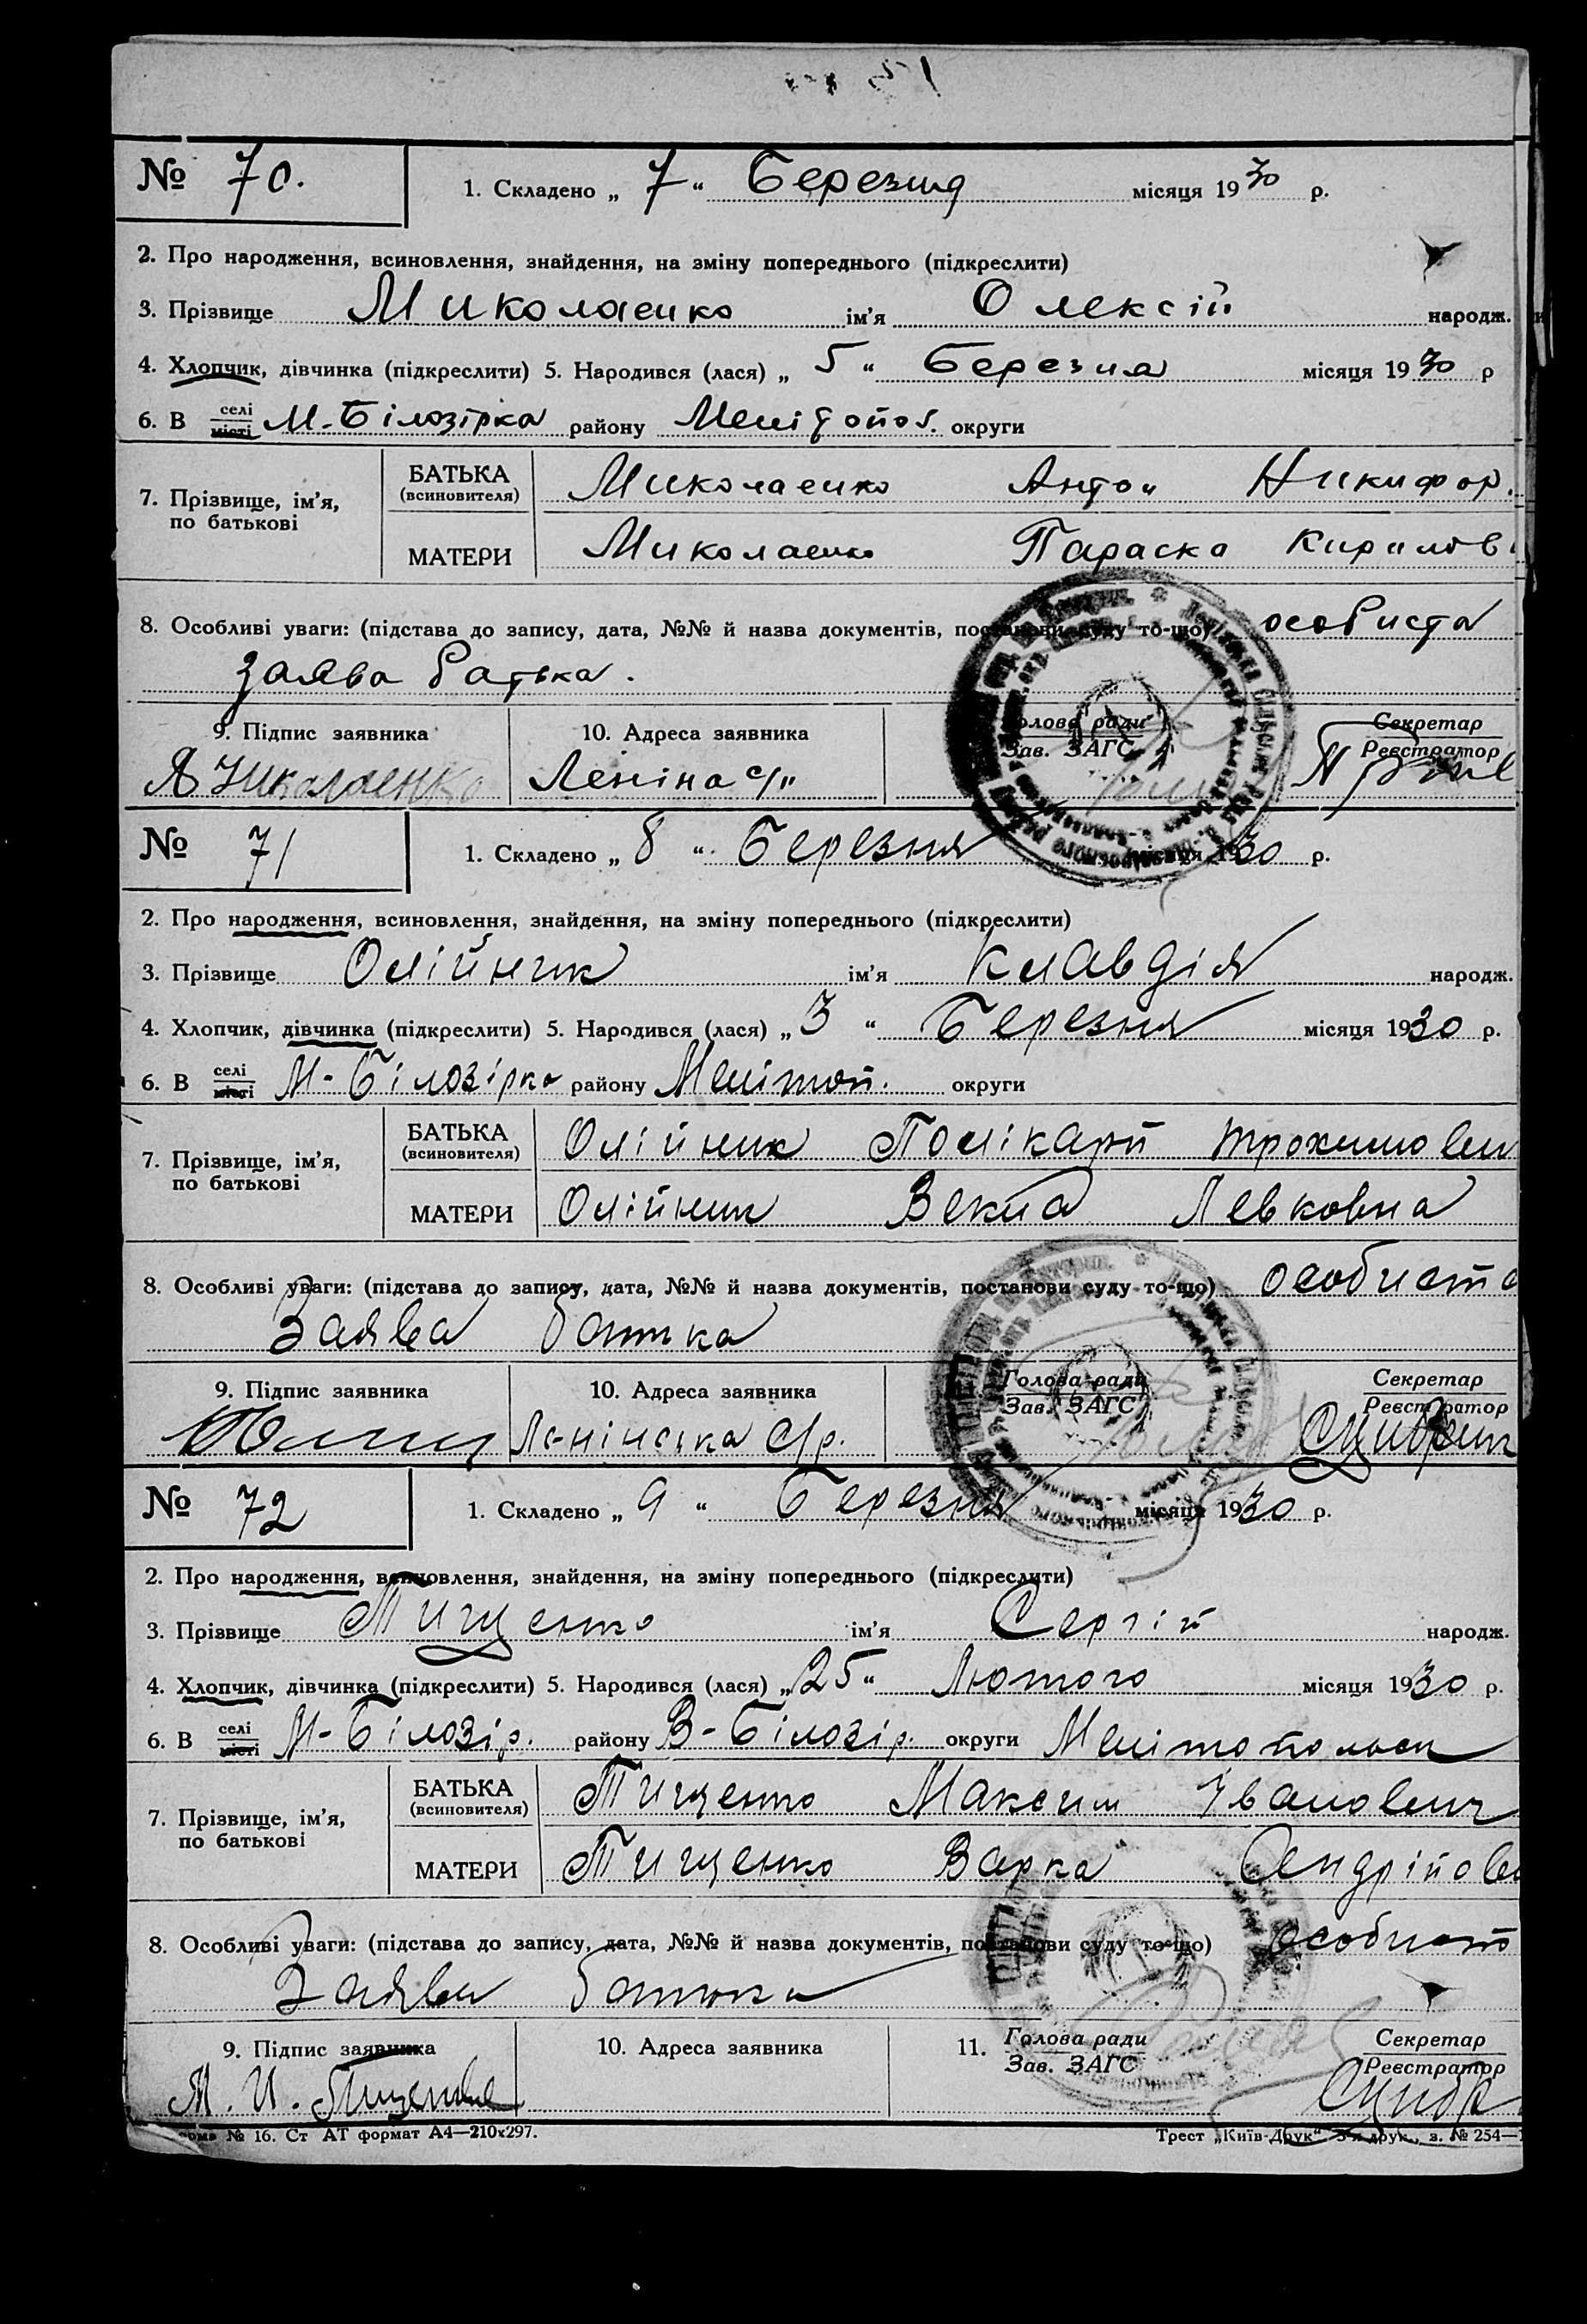 № 70. 1. Складено „ 7 “ Березня місяця 1930 р.
2. Про народження, всиновлення, знайдення, на зміну попереднього (підкреслити)
3. Прізвище Миколаенко ім'я Олексій народж.
4. Хлопчик, дівчинка (підкреслити) 5. Народився (лася) „ 5 “ Березня місяця 1930 р
6. В селі місті М-Білозірка району Мелітопол. округи
7. Прізвище, ім'я, по батькові
БАТЬКА (всиновителя) Миколаенко Антон Никифор.
МАТЕРИ Миколаенко Параска Кирилов
8. Особливі уваги: (підстава до запису, дата, №№ й назва документів, постанови суду то-що) особиста
заява батька.
9. Підпис заявника 10. Адреса заявника Голова ради Зав. ЗАГС Секретар Реєстратор
Леніна с/р
№ 71 1. Складено „ 8 “ Березня місяця 1930 р.
2. Про народження, всиновлення, знайдення, на зміну попереднього (підкреслити)
3. Прізвище Олійник ім'я Клавдія народж.
4. Хлопчик, дівчинка (підкреслити) 5. Народився (лася) „ 3 “ Березня місяця 1930 р.
6. В селі місті М-Білозірка району Мелітоп. округи
7. Прізвище, ім'я, по батькові
БАТЬКА (всиновителя) Олійник Полікарп Трохимович
МАТЕРИ Олійник Векла Левковна
8. Особливі уваги: (підстава до запису, дата, №№ й назва документів, постанови суду то-що) особиста
Заява батька
9. Підпис заявника 10. Адреса заявника Голова ради Зав. ЗАГС Секретар Реєстратор
Ленінська с/р.
№ 72 1. Складено „ 9 “ Березня місяця 1930 р.
2. Про народження, всиновлення, знайдення, на зміну попереднього (підкреслити)
3. Прізвище Тищенко ім'я Сергій народж.
4. Хлопчик, дівчинка (підкреслити) 5. Народився (лася) „ 25 “ Лютого місяця 1930 р.
6. В селі місті М-Білозір. району В-Білозір. округи Мелітопольск
7. Прізвище, ім'я, по батькові
БАТЬКА (всиновителя) Тищенко Максим Іванович
МАТЕРИ Тищенко Варка Андрійов
8. Особливі уваги: (підстава до запису, дата, №№ й назва документів, постанови суду то-що) особист
Заява батька
9. Підпис заявника 10. Адреса заявника 11. Голова ради Зав. ЗАГС Секретар Реєстратор
М. И. Тищенко
№ 16. Ст АТ формат А4—210х297. Трест „Київ-Друк“ 3-я друк., з. № 254—1